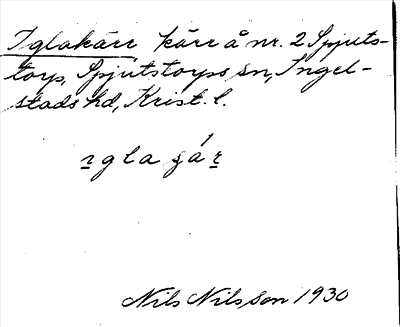 Iglakärr kärr å nr. 2 Spjuts-
torp, Spjutstorps sn, Ingel-
stads hd, Krist. l.
ɪgla gáʀ
Nils Nilsson 1930